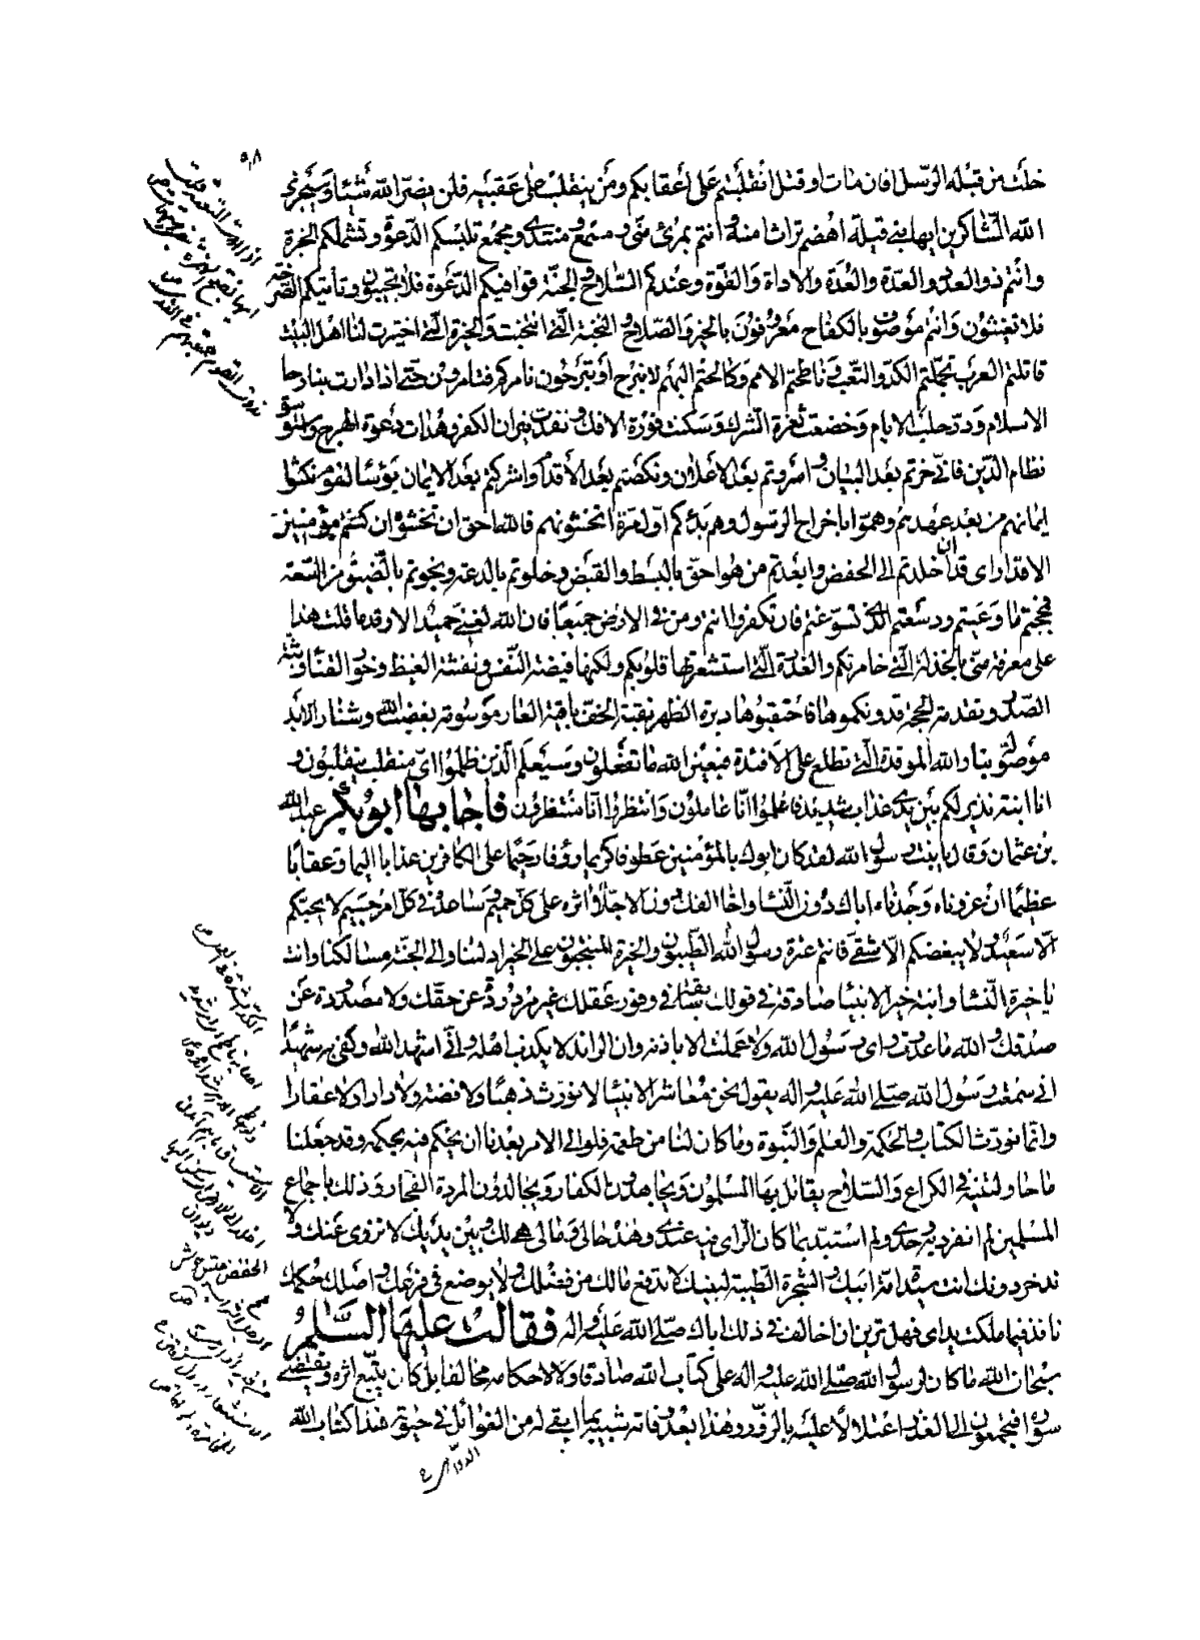 خلت من قبله الرسل افان مات او قتل انقلبتم على اعقابكم ومن ينقلب على عقبيه فلن يضر الله شيئا وسيجزى
الله الشاكرين ايها بنى قيلة ااهضم تراث ابيه وانتم بمرئ منى ومسمع ومنتدى ومجمع تلبسكم الدعوة وتشملكم الخبرة
وانتم ذو العدد والعدة والاداة والقوة وعندكم السلاح والجنة توافيكم الدعوة فلا تجيبون وتاتيكم الصرخة
فلا تغيثون وانتم موصوفون بالكفاح معروفون بالخير والصلاح والنخبة التى انتخبت والخيرة التى اختيرت لنا اهل البيت
قاتلتم العرب وتحملتم الكد والتعب وناطحتم الامم وكافحتم البهم لا نبرح او تبرحون نامركم فتامرون حتى اذا دارت بنا رحا
الاسلام ودر حلب الايام وخضعت ثغرة الشرك وسكنت فورة الافك وخمدت نيران الكفر وهدات دعوة الهرج واستوسق
نظام الدين فانى حزتم بعد البيان واسررتم بعد الاعلان ونكصتم بعد الاقدام واشركتم بعد الايمان بؤسا لقوم نكثوا
ايمانهم من بعد عهدهم وهموا باخراج الرسول وهم بدؤكم اول مرة اتخشونهم فالله احق ان تخشوه ان كنتم مؤمنين
الا وقد ارى ان قد اخلدتم الى الخفض وابعدتم من هو احق بالبسط والقبض وخلوتم بالدعة ونجوتم بالضيق من السعة
فمججتم ما وعيتم ودسعتم الذى تسوغتم فان تكفروا انتم ومن فى الارض جميعا فان الله لغنى حميد الا وقد قلت هذا
على معرفة منى بالخذلة التى خامرتكم والغدرة التى استشعرتها قلوبكم ولكنها فيضة النفس ونفثة الغيظ وخور القنا وبثة
الصدر وتقدمة الحجة فدونكموها فاحتقبوها دبرة الظهر نقبة الخف باقية العار موسومة بغضب الله وشنار الابد
موصولة بنار الله الموقدة التى تطلع على الافئدة فبعين الله ما تفعلون وسيعلم الذين ظلموا اى منقلب ينقلبون و
انا ابنة نذير لكم بين يدى عذاب شديد فاعملوا انا عاملون وانتظروا انا منتظرون فاجابها ابو بكر عبد الله
بن عثمان وقال يا بنت رسول الله لقد كان ابوك بالمؤمنين عطوفا كريما رؤفا رحيما على الكافرين عذابا اليما وعقابا
عظيما ان عزوناه وجدناه اباك دون النساء واخا الفك دون الاخلاء اثره على كل حميم وساعده فى كل امر جسيم لا يحبكم
الا سعيد ولا يبغضكم الا شقى فانتم عترة رسول الله الطيبون والخيرة المنتجبون على الخير ادلتنا والى الجنة مسالكنا وانت
يا خيرة النساء وابنة خير الانبيا صادقة فى قولك سابقة فى وفور عقلك غير مردودة عن حقك ولا مصدودة عن
صدقك والله ما عدوت راى رسول الله ولا عملت الا باذنه وان الرائد لا يكذب اهله وانى اشهد الله وكفى به شهيدا
انى سمعت رسول الله صلى الله عليه واله يقول نحن معاشر الانبيا لا نورث ذهبا ولا فضة ولا دارا ولا عقارا
وانما نورث الكتاب والحكمة والعلم والنبوة وما كان لنا من طعمة فلولى الامر بعدنا ان يحكم فيه بحكمه وقد جعلنا
ما حاولته فى الكراع والسلاح يقاتل بها المسلمون ويجاهدون الكفار ويجالدون المردة الفجار وذلك باجماع
المسلمين لم انفرد به وحدى ولم استبد بما كان الراى فيه عندى وهذه حالى ومالى هى لك وبين يديك لا نزوى عنك ولا
ندخر دونك انت سيدة امة ابيك والشجرة الطيبة لبنيك لا ندفع مالك من فضلك ولا يوضع فى فرعك واصلك حكمك
نافذ فيما ملكت يداى فهل ترين ان اخالف فى ذلك اباك صلى الله عليه واله فقالت عليها السلام
سبحان الله ما كان رسول الله صلى الله عليه واله عن كتاب الله صادفا ولا لاحكامه مخالفا بل كان يتبع اثره ويقتفى
سوره افتجمعون الى الغدر اعتلالا عليه بالزور وهذا بعد وفاته شبيه بما بغى له من الغوائل فى حيوته هذا كتاب الله